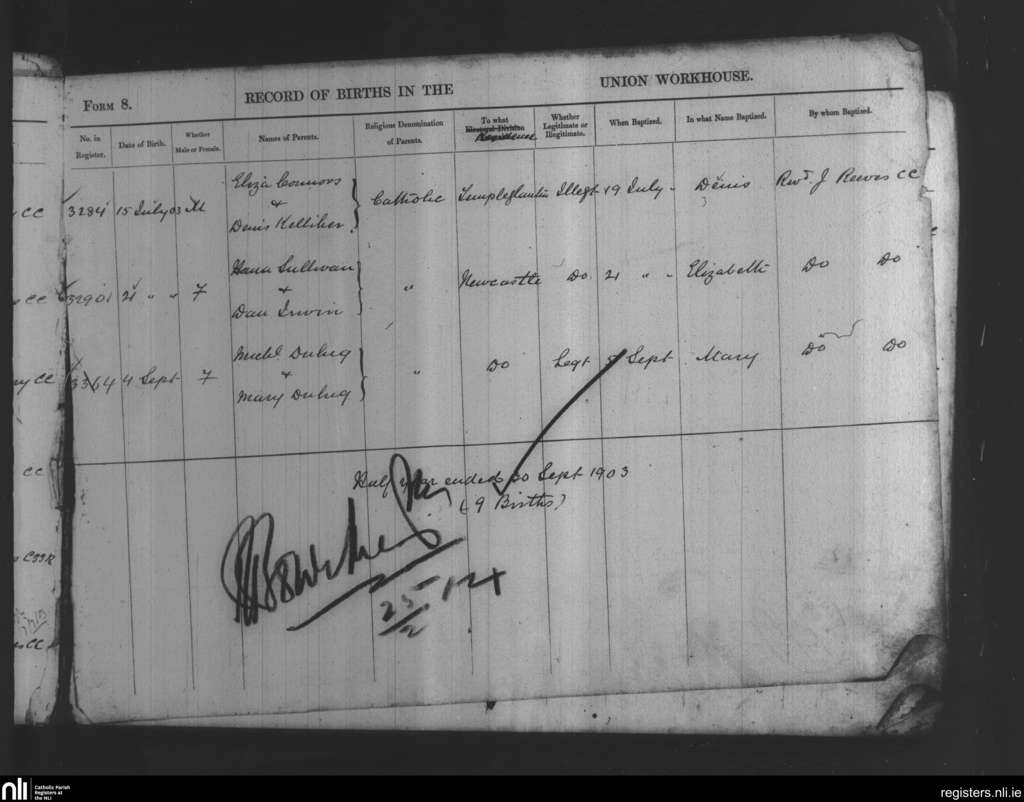 FORM 8.
RECORD OF BIRTHS IN THE UNION WORKHOUSE.
No. in Register. Date of Birth. Whether Male or Female. Names of Parents. Religious Denomination of Parents. To what Electoral Division Residence Whether Legitimate or Illegitimate. When Baptized. In what Name Baptized. By whom Baptized.
CC
3284 15 July 03 M Eliza Connors & Denis Kelliher Catholic Templeglantin Illegt 19 July " Denis Revd J Reeves CC
CC
3290 21 " " F Hana Sullivan & Dan Irwin " Newcastle Do 21 " " Elizabeth Do Do
CC
3364 4 Sept F Michl & Mary " Do Legt Sept Mary Do Do
CC
Half year ended 30 Sept 1903
(9 Births)
CSSR
25/2
CC
nli Catholic Parish Registers at the NLI
registers.nli.ie